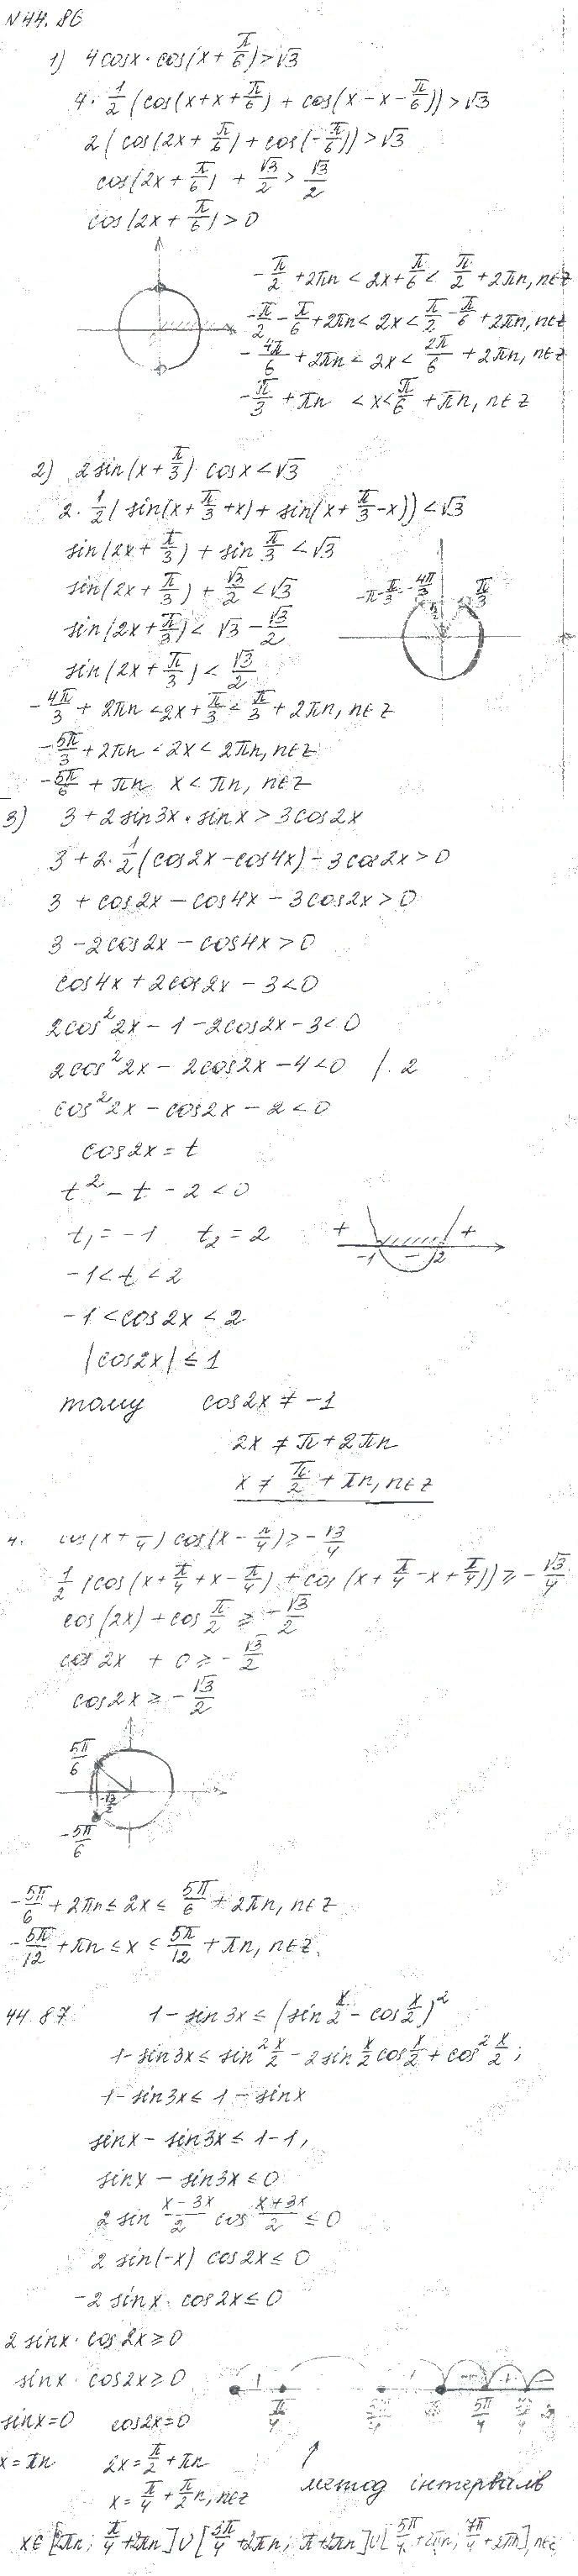 N44.86
1) 4cosx·cos(x+π/6)>√3
4·1/2(cos(x+x+π/6)+cos(x-x-π/6))>√3
2(cos(2x+π/6)+cos(-π/6))>√3
cos(2x+π/6)+√3/2>√3/2
cos(2x+π/6)>0
-π/2+2πn<2x+π/6<π/2+2πn, n∈Z
-π/2-π/6+2πn<2x<π/2-π/6+2πn, n∈Z
-4π/6+2πn<2x<2π/6+2πn, n∈Z
-π/3+πn<x<π/6+πn, n∈Z
2) 2sin(x+π/3) cosx<√3
2·1/2(sin(x+π/3+x)+sin(x+π/3-x))<√3
sin(2x+π/3)+sin π/3<√3
sin(2x+π/3)+√3/2<√3
-π-π/3=-4π/3 π/3
sin(2x+π/3)<√3-√3/2
sin(2x+π/3)<√3/2
-4π/3+2πn<2x+π/3<π/3+2πn, n∈Z
-5π/3+2πn<2x<2πn, n∈Z
-5π/6+πn x<πn, n∈Z
3) 3+2sin3x·sinx>3cos2x
3+2·1/2(cos2x-cos4x)-3cos2x>0
3+cos2x-cos4x-3cos2x>0
3-2cos2x-cos4x>0
cos4x+2cos2x-3<0
2cos²2x-1-2cos2x-3<0
2cos²2x-2cos2x-4<0 /:2
cos²2x-cos2x-2<0
cos2x=t
t²-t-2<0
t₁=-1 t₂=2
+ -1 - 2 +
-1<t<2
-1<cos2x<2
|cos2x|≤1
тому cos2x≠-1
2x≠π+2πn
x≠π/2+πn, n∈Z
4. cos(x+π/4)cos(x-π/4)≥-√3/4
1/2(cos(x+π/4+x-π/4)+cos(x+π/4-x+π/4))≥-√3/4
cos(2x)+cos π/2≥-√3/2
cos2x+0≥-√3/2
cos2x≥-√3/2
5π/6
-√3/2
-5π/6
-5π/6+2πn≤2x≤5π/6+2πn, n∈Z
-5π/12+πn≤x≤5π/12+πn, n∈Z.
44.87 1-sin3x≤(sin x/2-cos x/2)²
1-sin3x≤sin² x/2-2sin x/2 cos x/2+cos² x/2;
1-sin3x≤1-sinx
sinx-sin3x≤1-1,
sinx-sin3x≤0
2sin (x-3x)/2 cos (x+3x)/2≤0
2sin(-x) cos2x≤0
-2sinx·cos2x≤0
2sinx·cos2x≥0
sinx·cos2x≥0
sinx=0 cos2x=0
π/4 3π/4 π 5π/4 7π/4
x=πn 2x=π/2+πn
x=π/4+π/2n, n∈Z
метод інтервалів
x∈[2πn; π/4+2πn]∪[3π/4+2πn; π+2πn]∪[5π/4+2πn; 7π/4+2πn], n∈Z